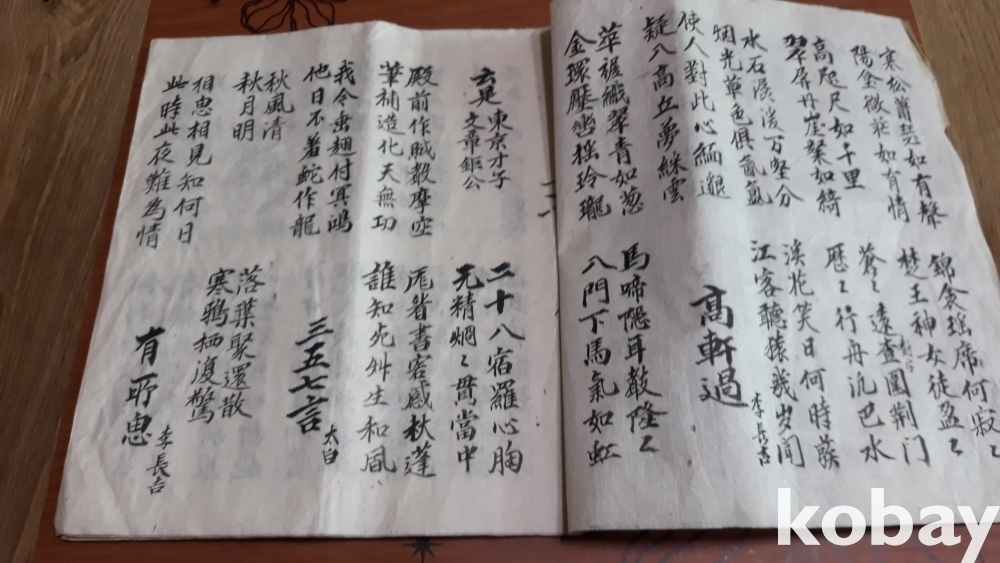 寒松蕭瑟如有聲
陽臺微茫如有情
錦衾瑤席何寂〻
楚王神女徒盈〻
高咫尺如千里
翠屏丹崖粲如綺
蒼〻遠查圍荆门
歷〻行舟汎巴水
水石潺湲万壑分
烟光草色俱氤氳
溪花笑日何時發
江客聽猿幾岁闻
使人對此心緬邈
疑入高丘夢綵雲
高軒過 李長吉
華裾織翠青如葱
金環壓轡搖玲瓏
馬啼隱耳聲隆〻
入門下馬氣如虹
云是東京才子
文章鉅公
二十八宿羅心胸
元精炯〻貫當中
殿前作賦聲摩空
筆補造化天無功
厖眉書客感秋蓬
誰知死艸生和風
我今垂翅付冥鴻
他日不羞蛇作龍
三五七言 太白
秋風清
秋月明
落葉聚還散
寒鴉栖復驚
相思相見知何日
此時此夜難為情
有所思 李長吉
kobay